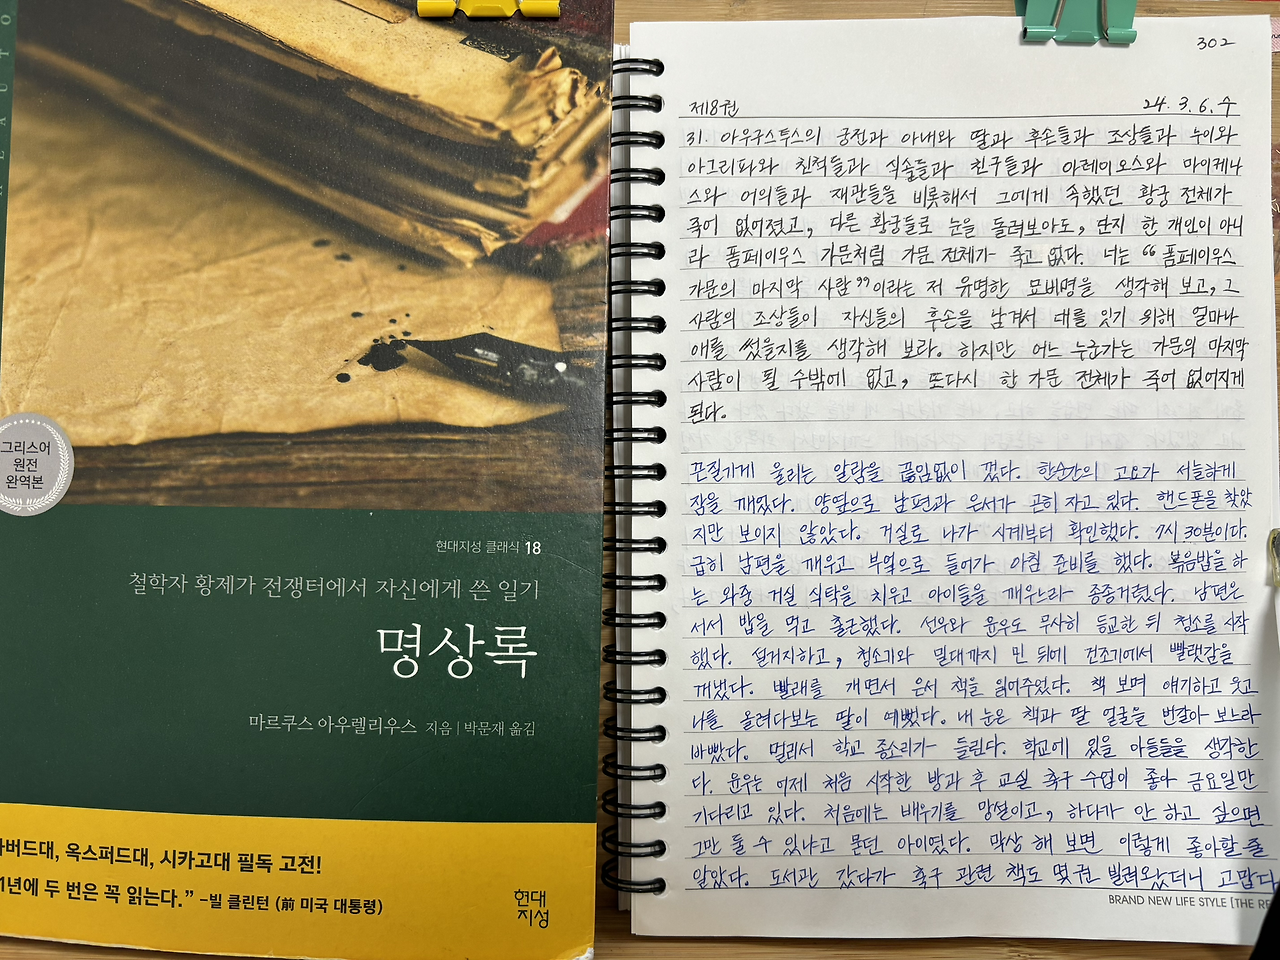 그리스어
원전
완역본
현대지성 클래식 18
철학자 황제가 전쟁터에서 자신에게 쓴 일기
명상록
마르쿠스 아우렐리우스 지음 | 박문재 옮김
하버드대, 옥스퍼드대, 시카고대 필독 고전!
1년에 두 번은 꼭 읽는다.” –빌 클린턴 (前 미국 대통령)
현대
지성
302
제8권 24. 3. 6. 수
31. 아우구스투스의 궁전과 아내와 딸과 후손들과 조상들과 누이와
아그리파와 친척들과 식솔들과 친구들과 아레이오스와 마이케나
스와 어의들과 재관들을 비롯해서 그에게 속했던 황궁 전체가
죽어 없어졌고, 다른 황궁들로 눈을 돌려보아도, 단지 한 개인이 아니
라 폼페이우스 가문처럼 가문 전체가 죽고 없다. 너는 “폼페이우스
가문의 마지막 사람”이라는 저 유명한 묘비명을 생각해 보고, 그
사람의 조상들이 자신들의 후손을 남겨서 대를 잇기 위해 얼마나
애를 썼을지를 생각해 보라. 하지만 어느 누군가는 가문의 마지막
사람이 될 수밖에 없고, 또다시 한 가문 전체가 죽어 없어지게
된다.
끈질기게 울리는 알람을 끊임없이 껐다. 한순간의 고요가 서늘하게
잠을 깨웠다. 양옆으로 남편과 은서가 곤히 자고 있다. 핸드폰을 찾았
지만 보이지 않았다. 거실로 나가 시계부터 확인했다. 7시 30분이다.
급히 남편을 깨우고 부엌으로 들어가 아침 준비를 했다. 볶음밥을 하
는 와중 거실 식탁을 치우고 아이들을 깨우느라 종종거렸다. 남편은
서서 밥을 먹고 출근했다. 선우와 윤우도 무사히 등교한 뒤 청소를 시작
했다. 설거지하고, 청소기와 밀대까지 민 뒤에 건조기에서 빨랫감을
꺼냈다. 빨래를 개면서 은서 책을 읽어주었다. 책 보며 얘기하고 웃고
나를 올려다보는 딸이 예뻤다. 내 눈은 책과 딸 얼굴을 번갈아 보느라
바빴다. 멀리서 학교 종소리가 들린다. 학교에 있을 아들들을 생각한
다. 윤우는 어제 처음 시작한 방과 후 교실 축구 수업이 좋아 금요일만
기다리고 있다. 처음에는 배우기를 망설이고, 하다가 안 하고 싶으면
그만 둘 수 있냐고 묻던 아이였다. 막상 해 보면 이렇게 좋아할 줄
알았다. 도서관 갔다가 축구 관련 책도 몇 권 빌려왔더니 고맙다
BRAND NEW LIFE STYLE [THE RE